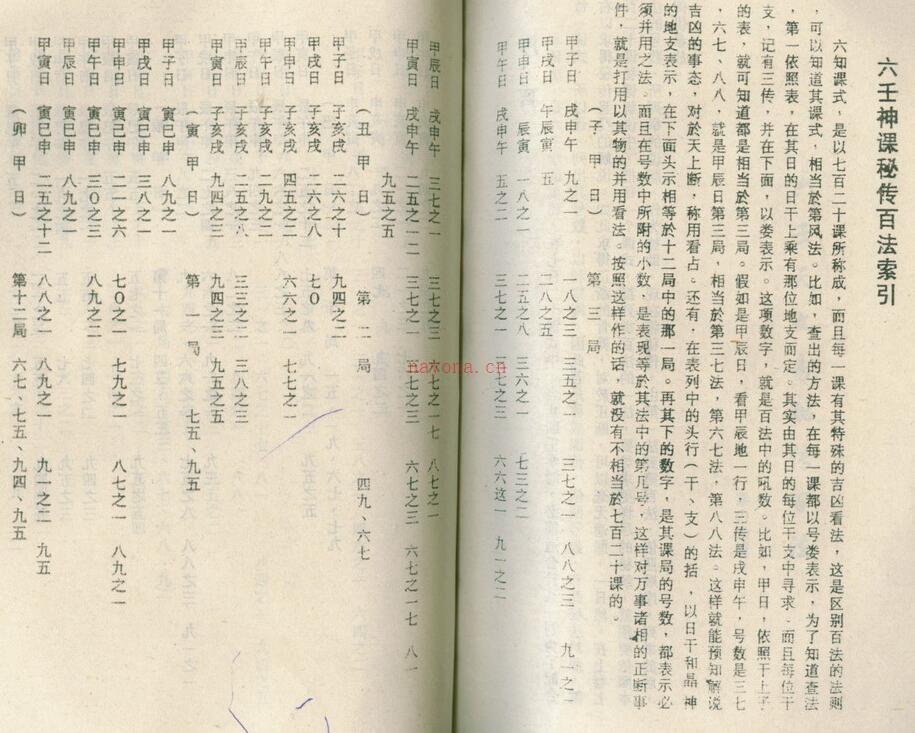 六壬神课秘传百法索引
六知课式，是以七百二十课所称成，而且每一课有其特殊的吉凶看法，这是区别百法的法则
，可以知道其课式，相当於第风法。比如，查出的方法，在每一课都以号娄表示，为了知道查法
，第一依照表，在其日的日干上乘有那位地支而定。其实由其日的每位干支中寻求。而且每位干
支，记有三传，并在下面，以娄表示。这项数字，就是百法中的吼数。比如，甲日，依照干上子
的表，就可知道都是相当於第三局。假如是甲辰日，看甲辰地一行，三传是戌申午，号数是三七
，六七、八八，就是甲辰日第三局，相当於第三七法，第六七法，第八八法。这样就能预知解说
吉凶的事态，对於天上断，称用看占。还有，在表列中的头行（干、支）的括，以日干和晶神
的地支表示，在下面头示相等於十二局中的那一局。再其下的数字，是其课局的号数，都表示必
须并用之法。而且在号数中所附的小数，是表现等於其法中的第几号，这样对万事诸相的正断事
件，就是打用以其物的并用看法。按照这样作的话，就没有不相当於七百二十课的。
（子甲日） 第三局
甲子日 戌申午 九之一 一八之三 三五之一 三七之一 八八之三 九一之一
甲戌日 午辰寅 五 二八之五
甲申日 辰寅 一八之一 二五之八 三六之一 七三之二
甲午日 戌申午 五之二 三七之一 三七之三 六六这一 九一之二
甲辰日 戌申午 三七之一 三七之三 六七之一七 八七之一
甲寅日 戌申午 二五之一二 三七之一 三七之三 六七之三 六七之一七 八一
九五之五
（丑甲日） 第二局 四九、六七
甲子日 子亥戌 二六之十 九四之二
甲戌日 子亥戌 二六之八 七〇
甲申日 子亥戌 四五之二 六六之一 七七之一
甲午日 子亥戌 二九之二
甲辰日 子亥戌 二五之八 三三之二 三八之三
甲寅日 子亥戌 九四之三 九四之三 九五之五
（寅甲日） 第一局 七五、九五
甲子日 寅巳申 八九之一
甲戌日 寅巳申 三八之一
甲申日 寅巳申 二一之六 七〇之一 七九之一 八七之一 八九之一
甲午日 寅巳申 三〇之三 八九之二
甲辰日 寅巳申 八九之一
甲寅日 寅巳申 二五之十二 八八之一 八九之一 九一之二 九五
（卯甲日） 第十二局 六七、七五、九四、九五
navona.cn